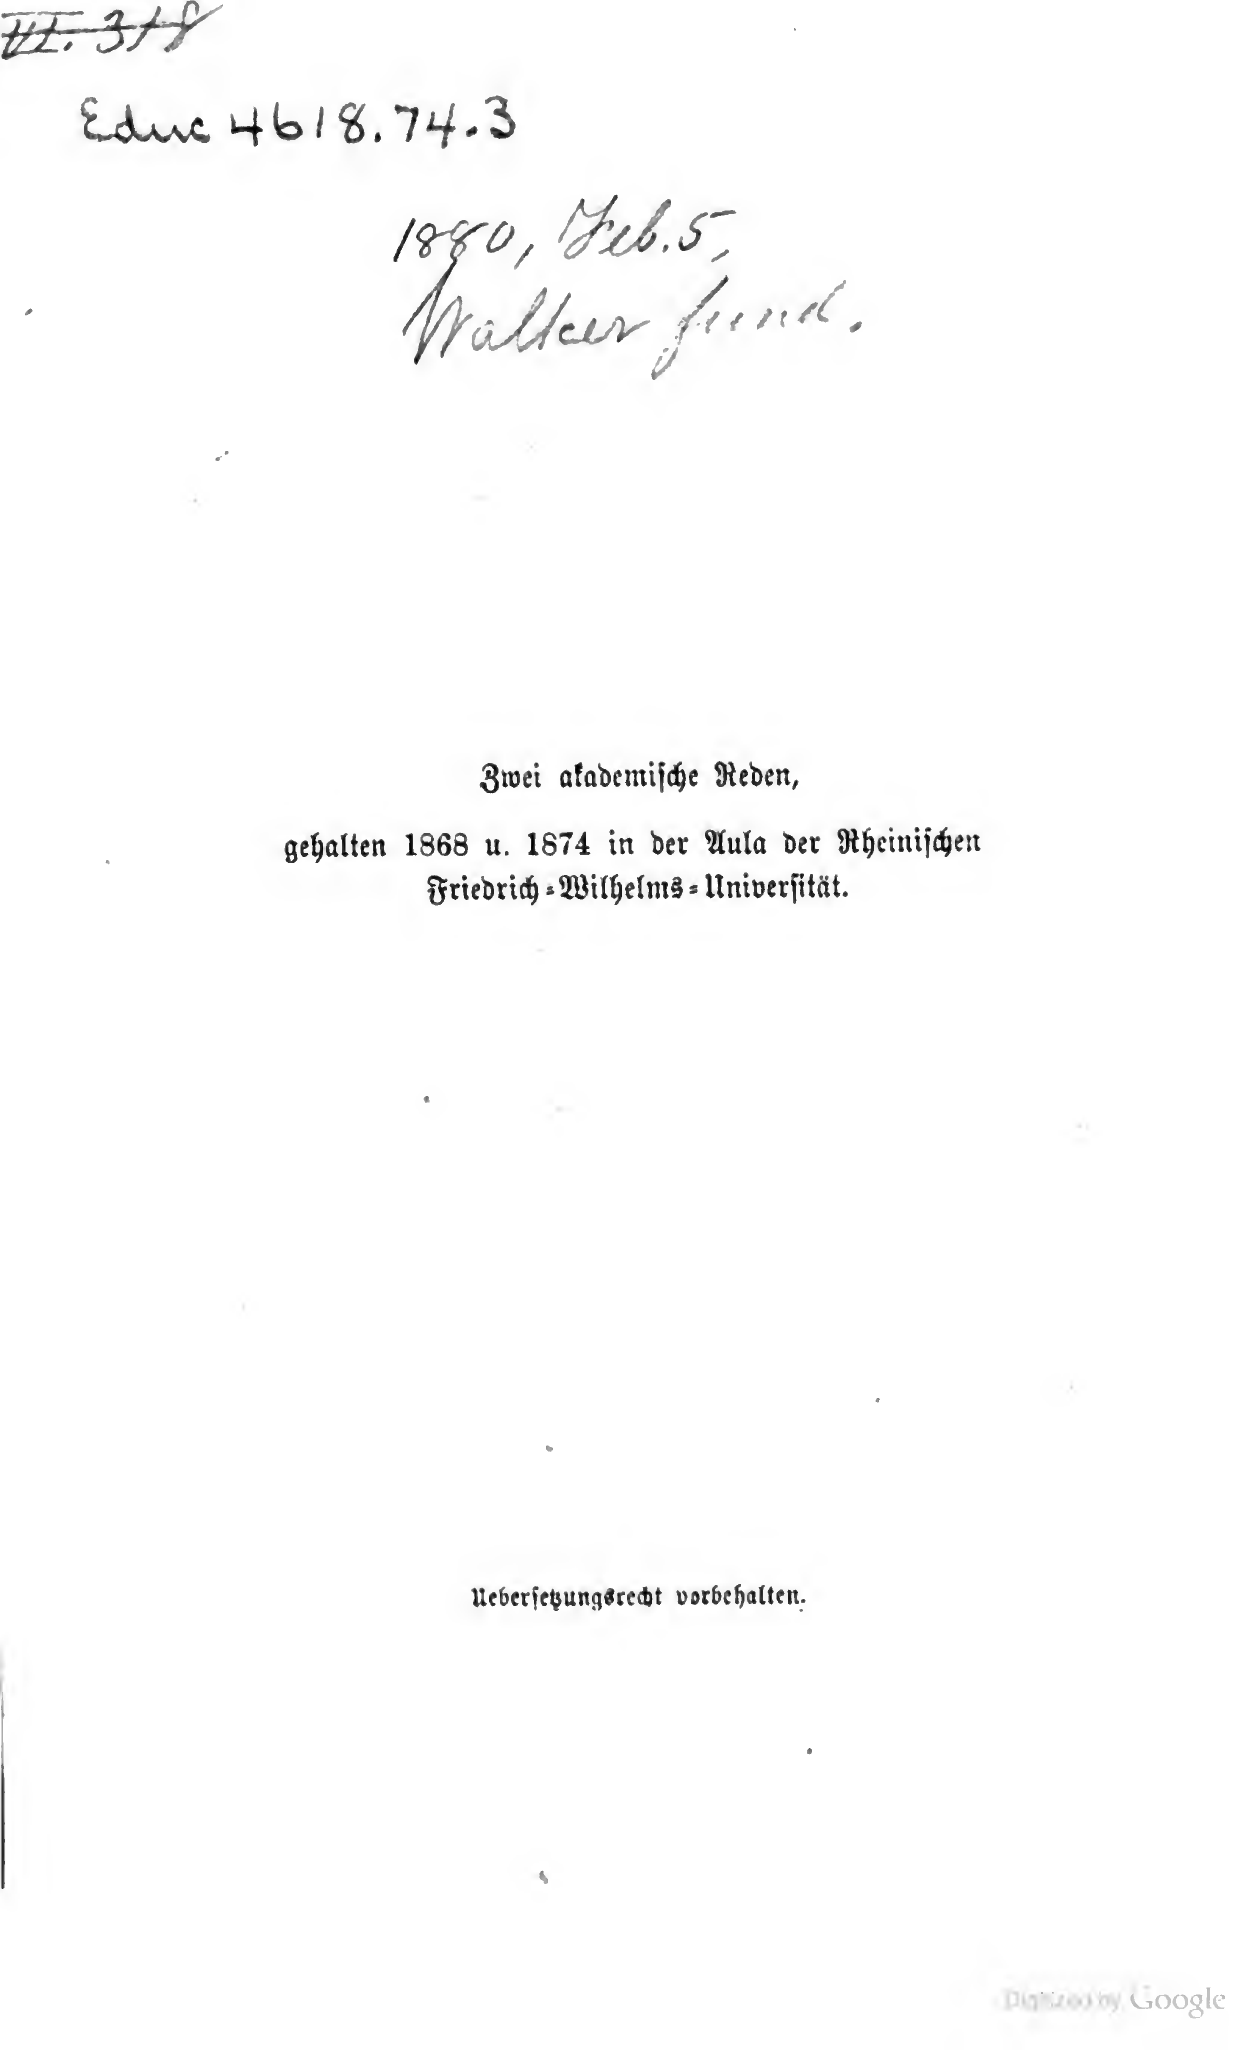 VI. 318
Educ 4618.74.3
1880, Feb. 5,
Walker fund.
Zwei akademische Reden,
gehalten 1868 u. 1874 in der Aula der Rheinischen
Friedrich-Wilhelms-Universität.
Uebersetzungsrecht vorbehalten.
Digitized by Google